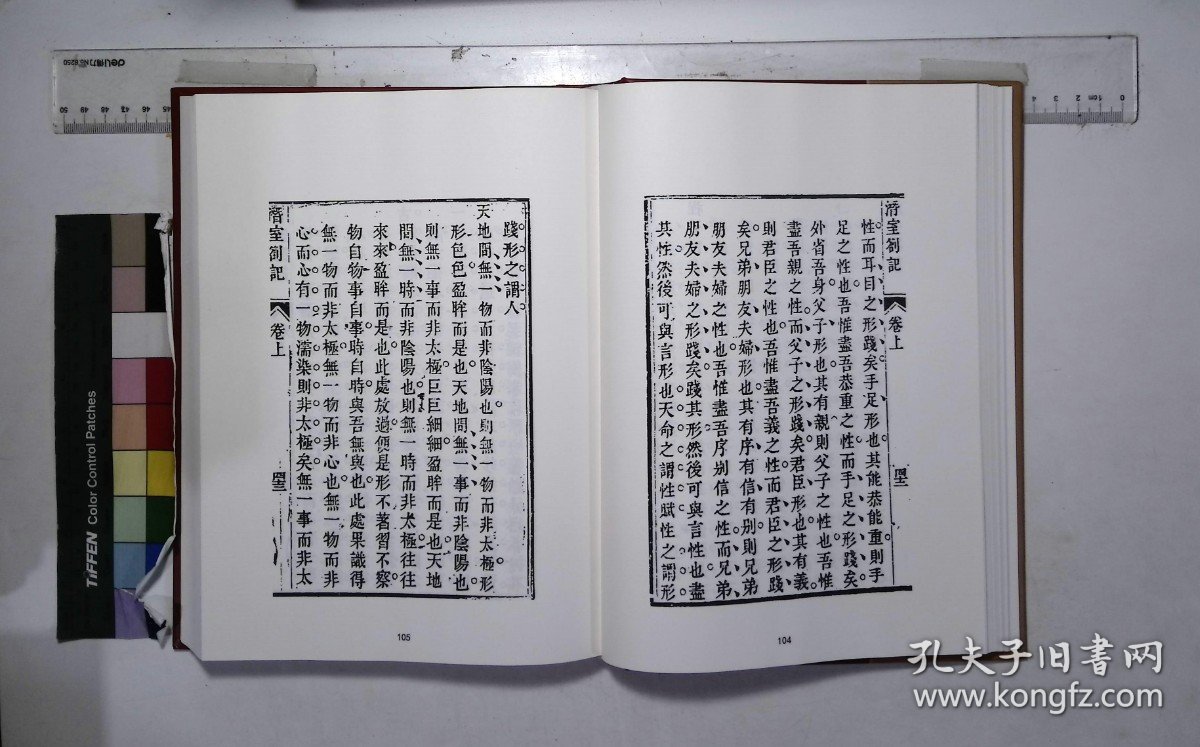 潛室劄記
卷上
四三
性而耳目之形踐矣手足形也其能恭能重則手
足之性也吾惟盡吾恭重之性而手足之形踐矣
外省吾身父子形也其有親則父子之性也吾惟
盡吾親之性而父子之形踐矣君臣形也其有義
則君臣之性也吾惟盡吾義之性而君臣之形踐
矣兄弟朋友夫婦形也其有序有信有别則兄弟
朋友夫婦之性也吾惟盡吾序别信之性而兄弟
朋友夫婦之形踐矣踐其形然後可與言性也盡
其性然後可與言形也天命之謂性賦性之謂形
104
踐形之謂人
天地間無一物而非陰陽也則無一物而非太極形
形色色盈眸而是也天地間無一事而非陰陽也
則無一事而非太極巨巨細細盈眸而是也天地
間無一時而非陰陽也則無一時而非太極往往
來來盈眸而是也此處放過便是形不著習不察
物自物事自事時自時與吾無與也此處果識得
無一物而非太極無一物而非心也無一物而非
心而心有一物濡染則非太極矣無一事而非太
潛室劄記
卷上
四三
105
TIFFEN Color Control Patches
deli得力 No.6250
孔夫子旧書网
www.kongfz.com